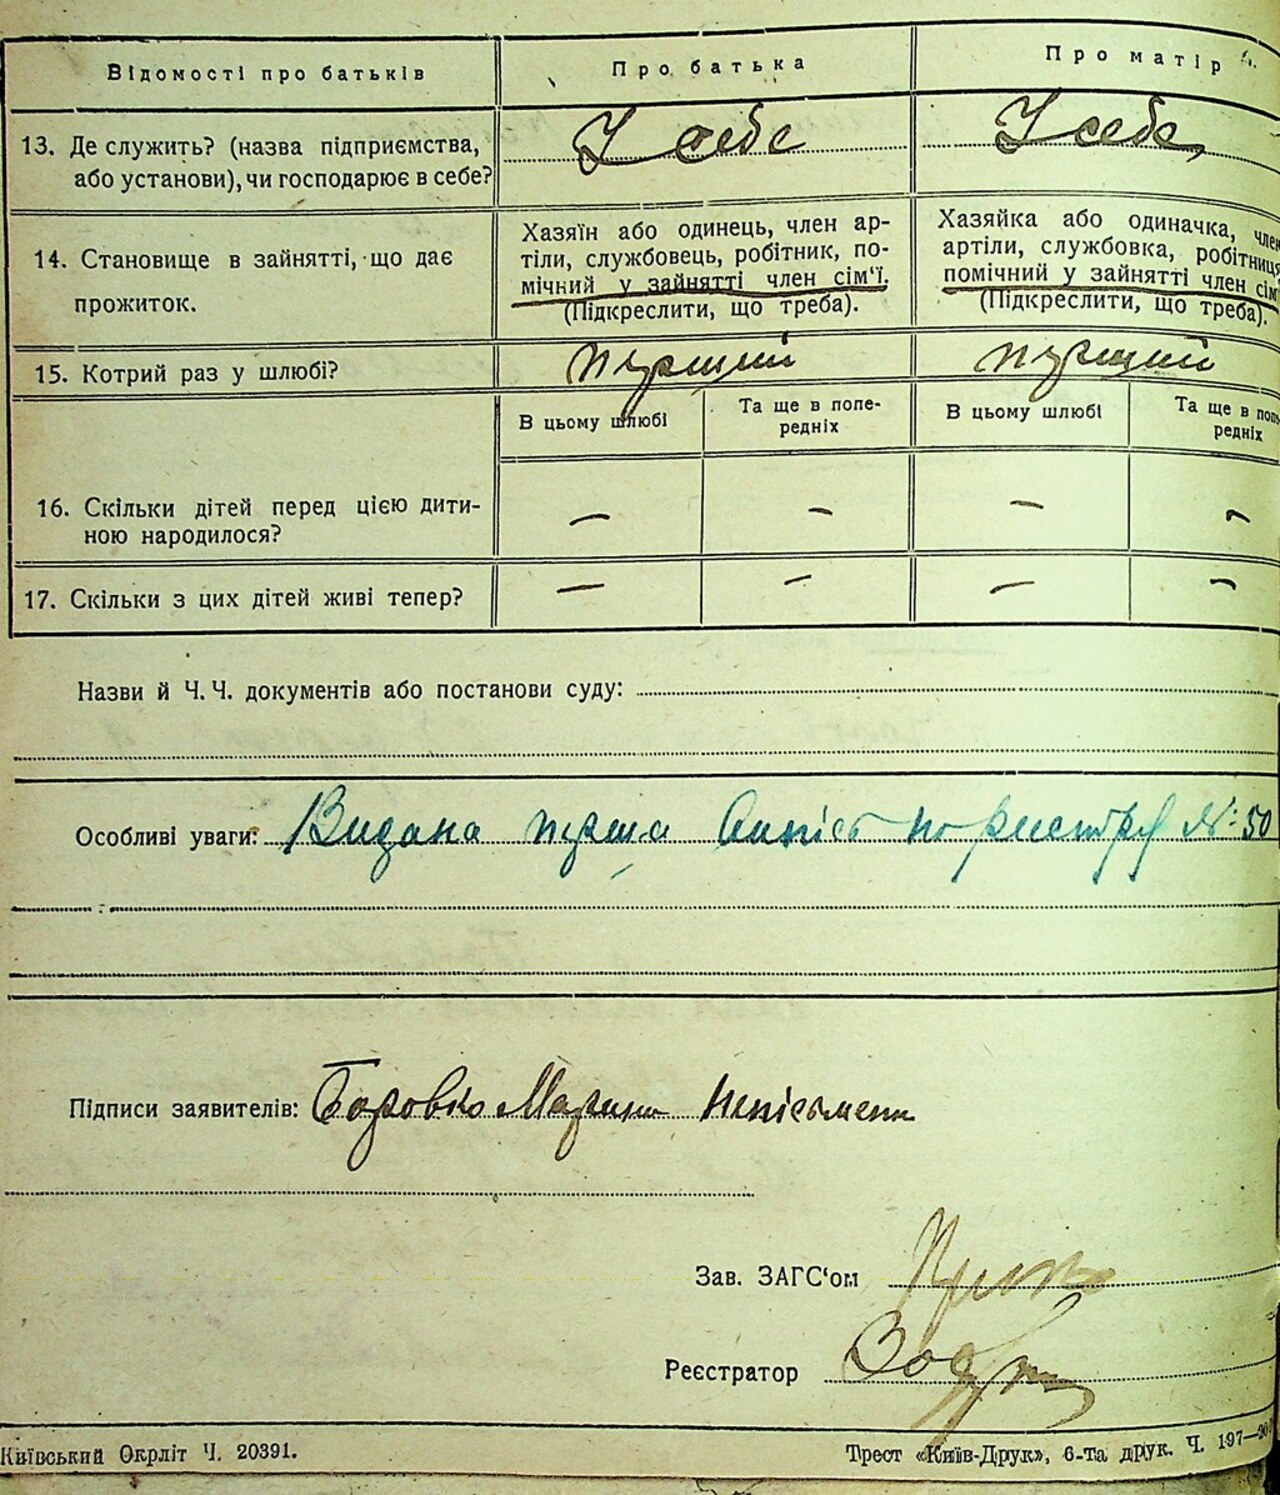 Відомості про батьків
Про батька
Про матір
13. Де служить? (назва підприємства,
або установи), чи господарює в себе?
У себе
У себе
14. Становище в зайнятті, що дає
прожиток.
Хазяїн або одинець, член ар-
тіли, службовець, робітник, по-
мічний у зайнятті член сім'ї.
(Підкреслити, що треба).
Хазяйка або одиначка, член
артіли, службовка, робітниця
помічний у зайнятті член сім'
(Підкреслити, що треба).
15. Котрий раз у шлюбі?
перший
перший
В цьому шлюбі
Та ще в попе-
редніх
В цьому шлюбі
Та ще в попе
редніх
16. Скільки дітей перед цією дити-
ною народилося?
— — — —
17. Скільки з цих дітей живі тепер?
— — — —
Назви й Ч. Ч. документів або постанови суду:
Особливі уваги: Видана перша випісь по реєстру №: 50
Підписи заявителів: Боровко Марини непісьмени
Зав. ЗАГС'ом
Реєстратор
Київський Окрліт Ч. 20391.
Трест «Київ-Друк», 6-та друк. Ч. 197—